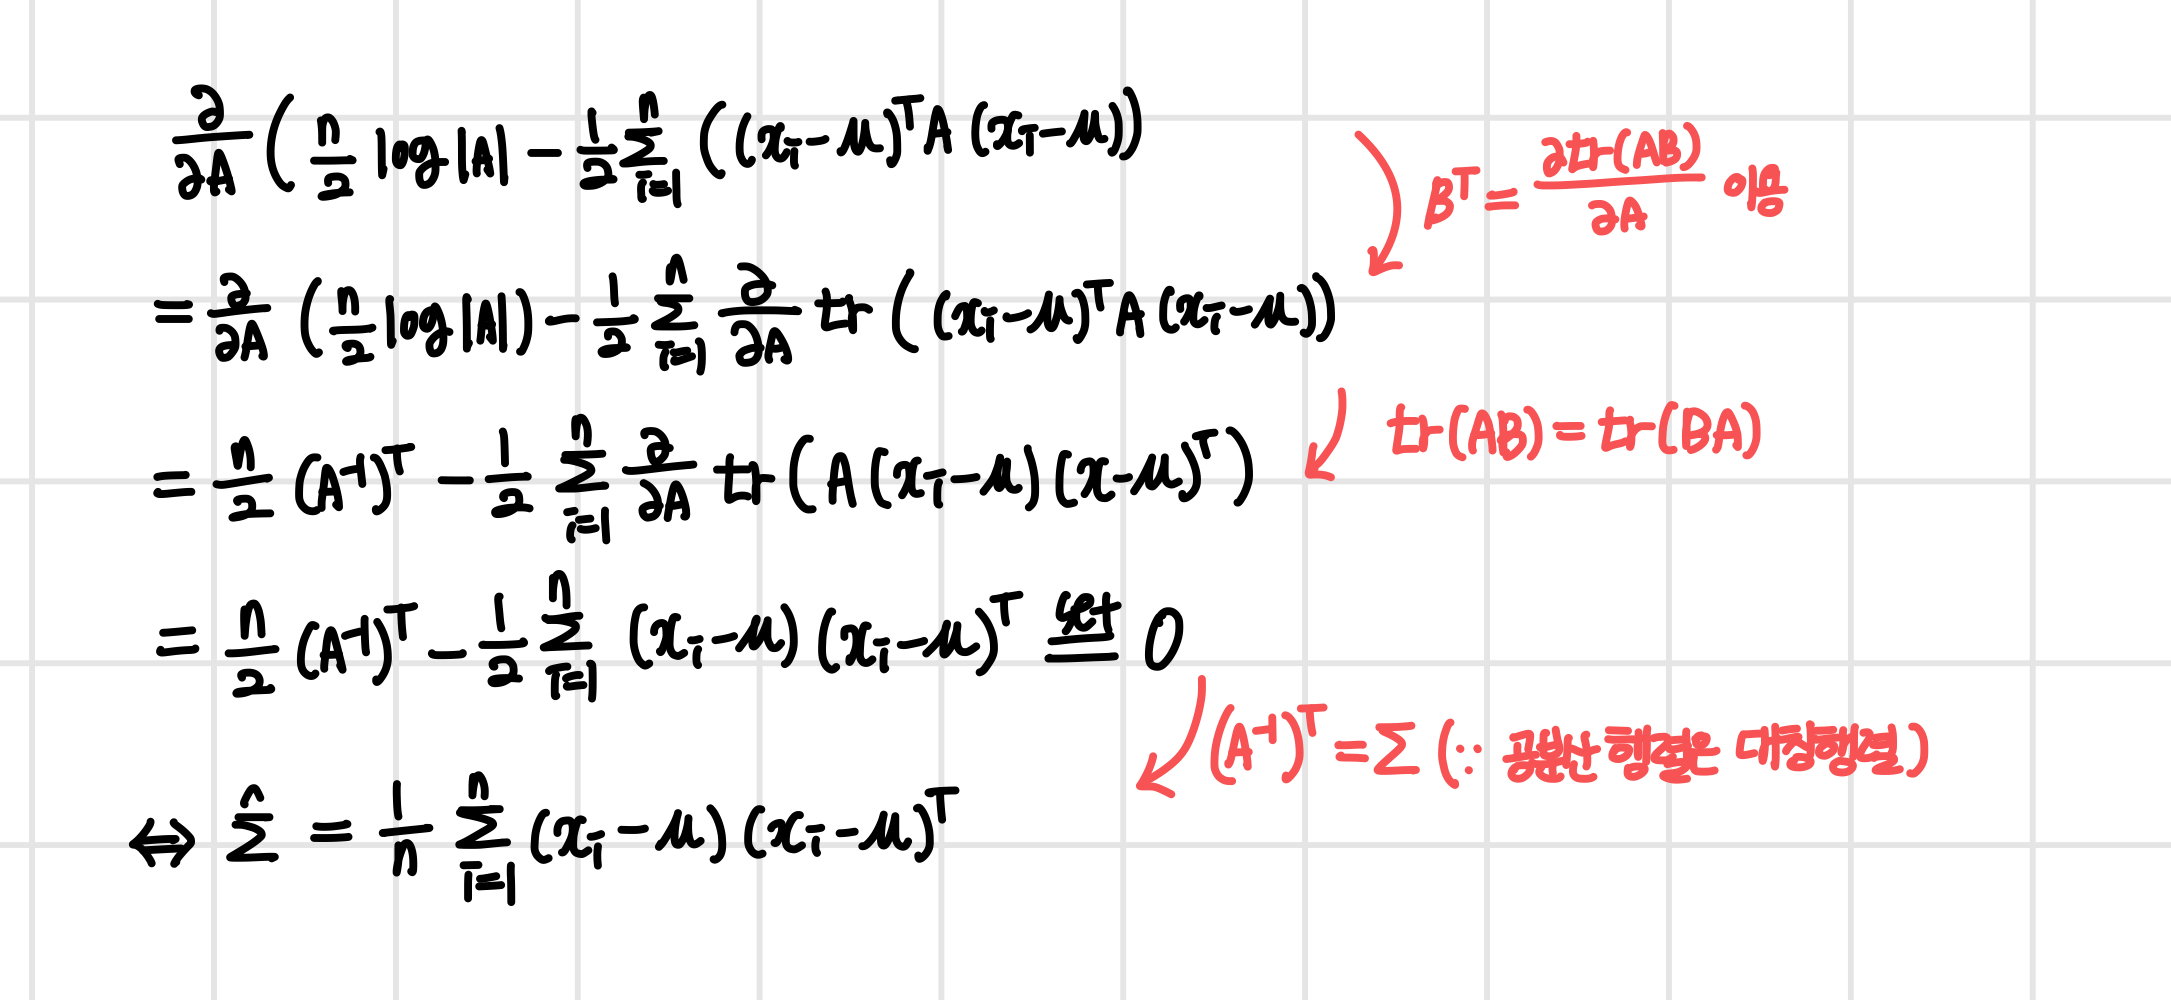 ∂/∂A ( n/2 log|A| - 1/2 Σ_{i=1}^{n} ((x_i-μ)^T A (x_i-μ))
B^T = ∂tr(AB)/∂A 이용
= ∂/∂A ( n/2 log|A| ) - 1/2 Σ_{i=1}^{n} ∂/∂A tr ( (x_i-μ)^T A (x_i-μ))
tr(AB) = tr(BA)
= n/2 (A^{-1})^T - 1/2 Σ_{i=1}^{n} ∂/∂A tr ( A (x_i-μ) (x-μ)^T )
= n/2 (A^{-1})^T - 1/2 Σ_{i=1}^{n} (x_i-μ) (x_i-μ)^T = 0
(A^{-1})^T = Σ (∵ 공분산 행렬은 대칭행렬)
⇔ Σ̂ = 1/n Σ_{i=1}^{n} (x_i-μ) (x_i-μ)^T